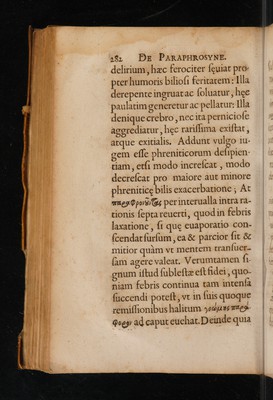 282 DE PARAPHROSYNE.
delirium, hæc ferociter sęuiat pro-
pter humoris biliosi feritatem: Illa
derepente ingruat ac soluatur, hęc
paulatim generetur ac pellatur: Illa
denique crebro, nec ita perniciose
aggrediatur, hęc rarissima existat,
atque exitialis. Addunt vulgo iu-
gem esse phreniticorum desipien-
tiam, etsi modo increscat, modo
decrescat pro maiore aut minore
phreniticę bilis exacerbatione; At
per interualla intra ra-
tionis septa reuerti, quod in febris
laxatione, si quę euaporatio con-
scendat sursum, ea & parcior sit &
mitior quàm vt mentem transuer-
sam agere valeat. Verumtamen si-
gnum istud sublestæ est fidei, quo-
niam febris continua tam intensa
succendi potest, vt in suis quoque
remissionibus halitum
ad caput euehat. Deinde quia